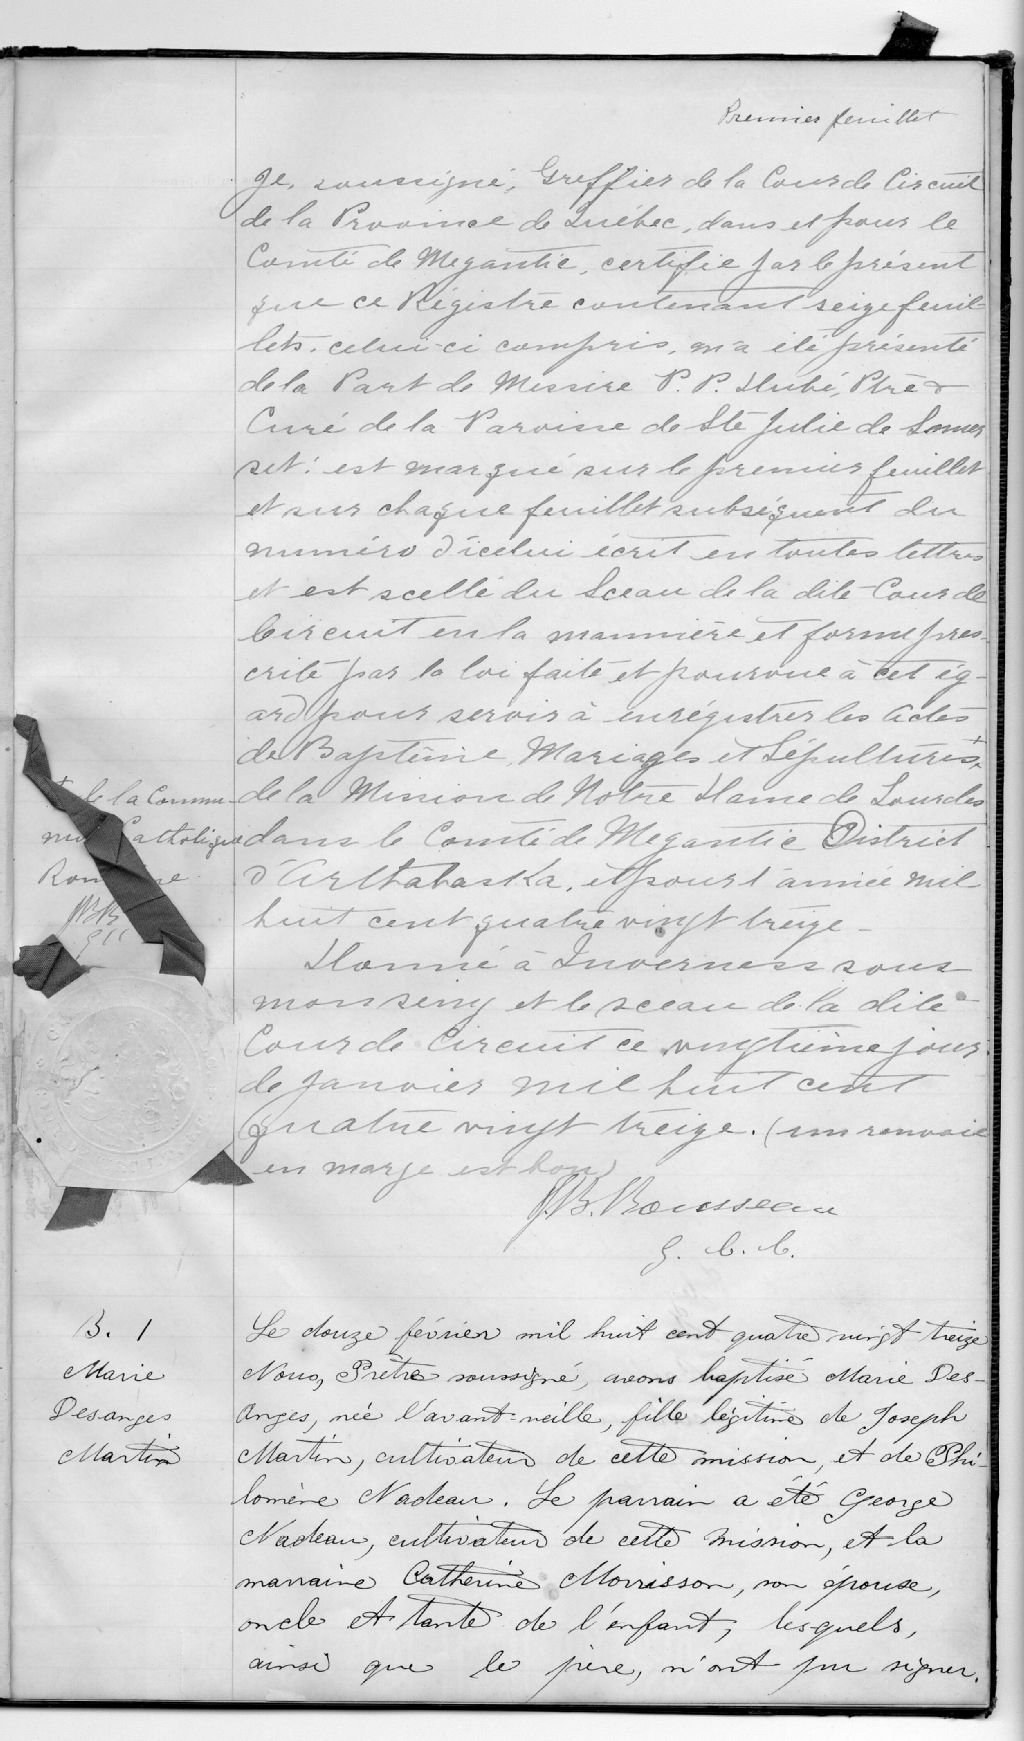 Premier feuillet
Je, soussigné, Greffier de la Cour de Circuit
de la Province de Québec, dans et pour le
Comté de Megantic, certifie par le présent
que ce Régistre contenant seize feuil
lets, celui-ci compris, m'a été présenté
de la Part de Messire P. P. Dubé, Ptre &
Curé de la Paroisse de Ste Julie de Somer
set: est marqué sur le premier feuillet
et sur chaque feuillet subséquent du
numéro d'icelui écrit en toutes lettres
et est scellé du Sceau de la dite Cour de
Circuit en la mannière et forme pres-
crite par la loi faite et pourvue à cet ég-
ard pour servir à enrégistrer les Actes
de Baptême, Mariages et Sépultures +
de la Mission de Notre Dame de Lourdes
dans le Comté de Megantic District
d'Arthabaska, et pour l'année mil
huit cent quatre vingt treize -
+ de la Commu-
Catholique
Donné à Inverness sous
mon seing et le sceau de la dite
Cour de Circuit ce vingtième jour
de Janvier mil huit cent
quatre vingt treize. (un renvoi
en marge est bon)
J.B. Rousseau
G. C. C.
B. 1
Marie
Desanges
Martin
Le douze février mil huit cent quatre vingt treize
Nous, Prêtre soussigné, avons baptisé Marie Des-
Anges, née l'avant-veille, fille légitime de Joseph
Martin, cultivateur de cette mission, et de Phi-
lomène Nadeau. Le parrain a été George
Nadeau, cultivateur de cette mission, et la
marraine Catherine Morrisson, son épouse,
oncle et tante de l'enfant, lesquels,
ainsi que le père, n'ont pu signer.